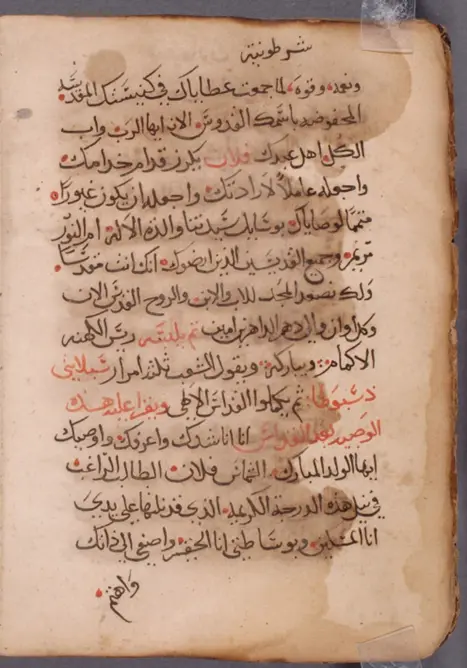 شرطونية
ونعمه وقوه لما جمعت عطاياك في كنيستك المقدسه
المحفوضه باسمك القدوس الان ايها الرب واب
الكل اهل عبدك فلان يكون قدام خدامك
واجعله عاملاً لارادتك واجعله ان يكون غيوراً
متمماً لوصاياك بوسايل سيدتنا والدة الاله ام النور
مريم وجميع القديسين الذين ارضوك انك انت مقدساً
ولك نصعد المجد للاب والابن والروح القدس الان
وكل اوان والى دهر الداهرين امين ثم يلبسه ريس الكهنه
الاكمام ويباركه ويقول الشعب ثلثة امرار
ثم يكملوا القداس الالهي ويقرا عليه هذه
الوصيه بعد القداس انا اناشدك واعرفك واوصيك
ايها الولد المبارك الشماس فلان الطالب الراغب
في نيل هذه الدرجة الكريمه الذي قد نلتها على يدي
انا المسكين وبوساطتي انا الحقير واصغي الى ذاتك
واهتم